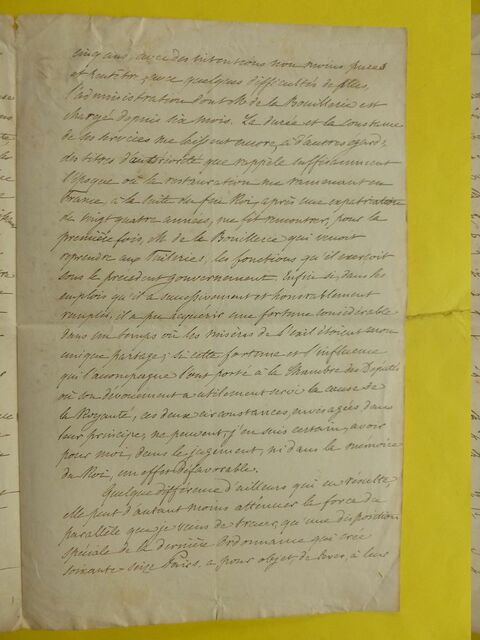 cinq ans, avec des intentions non moins pures
et peut être avec quelques difficultés de plus,
l'administration dont M. de la Bouillerie est
chargé depuis six mois. La durée et la constance
de ses services me laissent encore, à d'autres égards,
des titres d'antériorité que rappele suffisamment
l'époque où la restauration me ramenant en
France, à la suite du feu Roi, après une expatriation
de vingt quatre années, me fit rencontrer, pour la
première fois, M. de la Bouillerie qui venoit
reprendre aux Tuileries, les fonctions qu'il exerçoit
sous le précédent gouvernement. Enfin si, dans les
emplois qu'il a successivement et honorablement
remplis, il a pu acquerir une fortune considérable
dans un temps où les misères de l'exil étoient mon
unique partage; si cette fortune et l'influence
qui l'accompagne l'ont porté à la Chambre des Députés
où son dévouement a utilement servi la cause de
la Royauté, ces deux circonstances, envisagées dans
leur principe, ne peuvent, j'en suis certain, avoir
pour moi, dans le jugement, ni dans la mémoire
du Roi, un effet défavorable.
Quelque différence d'ailleurs qui en résulte,
elle peut d'autant moins atténuer la force du
parallèle que je viens de tracer, qu'une disposition
spéciale de la dernière Ordonnance qui crée
soixante-seize Pairs, a pour objet de lever, à leur